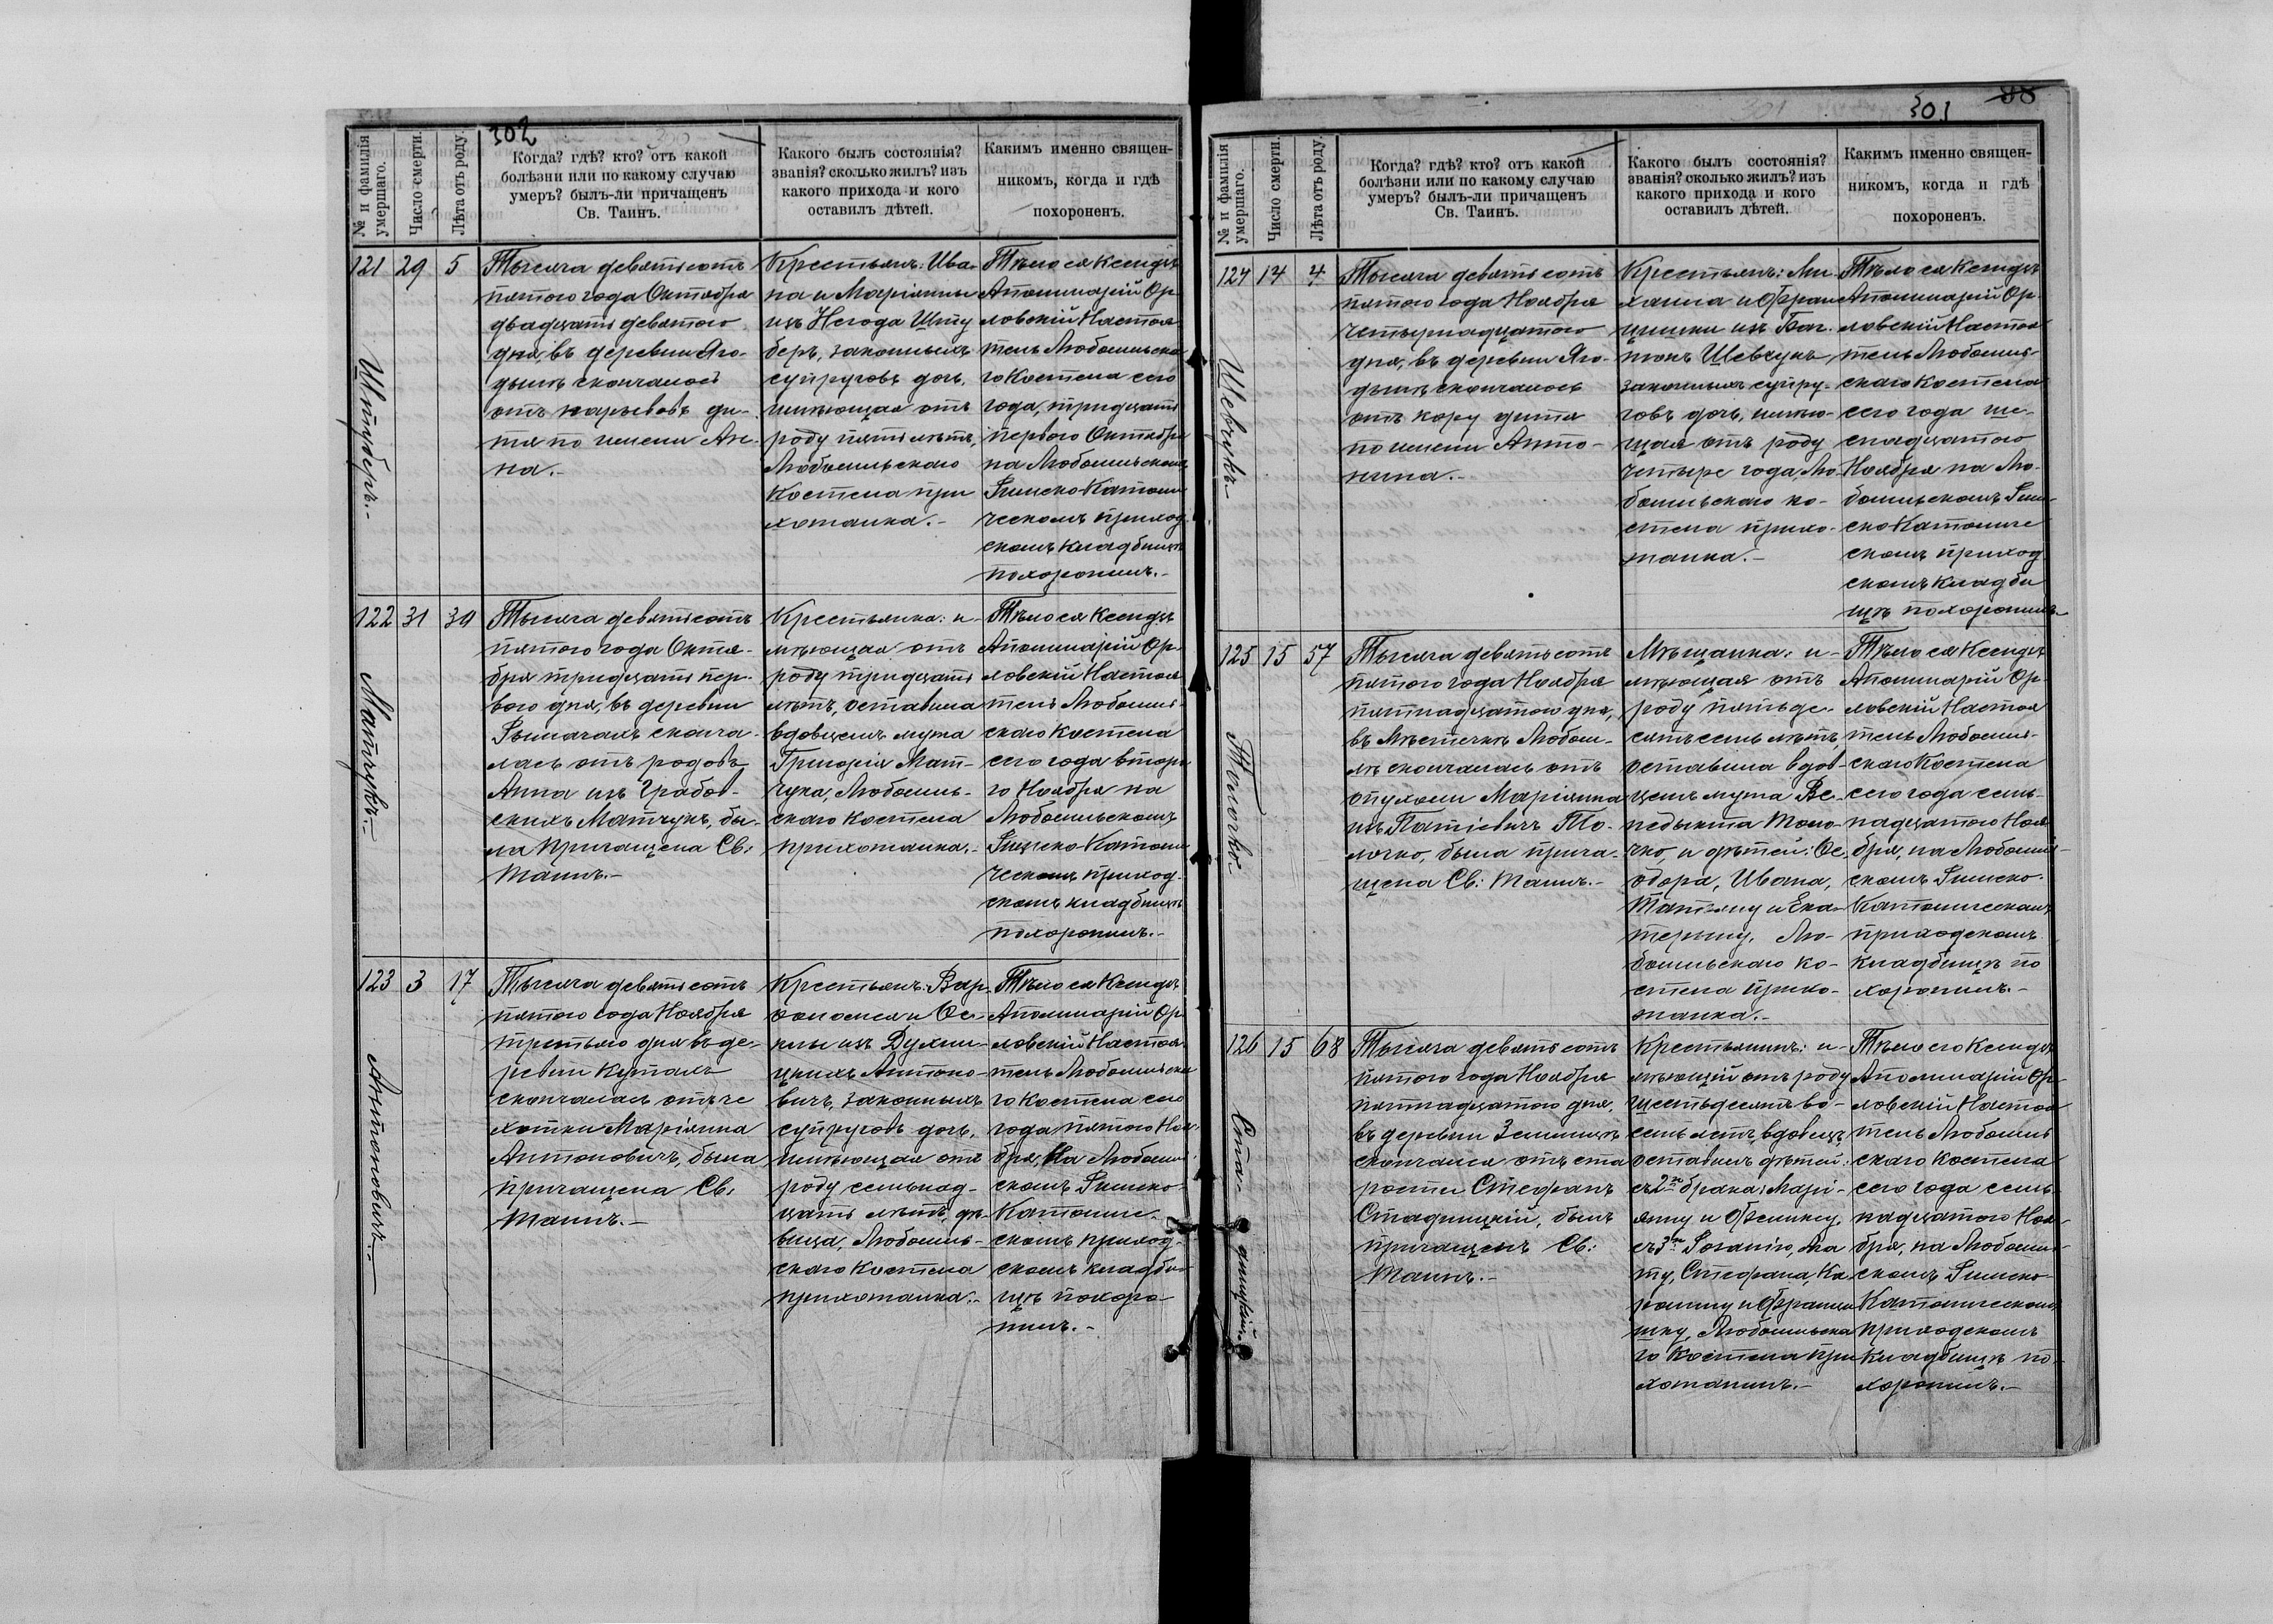 302
№ и фамилія умершаго.
Число смерти.
Лѣта отъ роду.
Когда? гдѣ? кто? отъ какой
болѣзни или по какому случаю
умеръ? былъ-ли причащенъ
Св. Таинъ.
Какого былъ состоянія?
званія? сколько жилъ? изъ
какого прихода и кого
оставилъ дѣтей.
Какимъ именно священ-
никомъ, когда и гдѣ
похороненъ.
121 29 5
Штуберъ.-
Тысяча девятьсотъ
пятого года Октября
двадцать девятого
дня, въ деревни Яго-
дынѣ скончалось
отъ нарывовъ ди-
тя по имени Ан-
на.-
Крестьянъ: Ива-
на и Маріянны
изъ Негода Шту
беръ, законныхъ
супруговъ дочь,
имѣющая отъ
роду пять лѣтъ,
Любомльскаго
Костела при
хожанка.-
Тѣло ея Ксендзъ
Аполинарій Ор-
ловскій Настоя-
тель Любомльска
го Костела сего
года, тридцать
первого Октября
на Любомльскомъ
Римско-Католи
ческомъ приход-
скомъ кладбищѣ
похоронилъ.-
122 31 30
Матчукъ.-
Тысяча девятьсотъ
пятого года Октя-
бря тридцать пер-
вого дня, въ деревни
Рымачахъ сконча-
лась отъ родовъ
Анна изъ Грабов-
скихъ Матчукъ, бы-
ла причащена Св:
Таинъ.-
Крестьянка: и-
мѣющая отъ
роду тридцать
лѣтъ, оставила
вдовцемъ мужа
Григорія Мат-
чука, Любомль-
скаго Костела
прихожанка.-
Тѣло ея Ксендзъ
Аполинарій Ор-
ловскій Настоя
тель Любомль-
скаго Костела
сего года второ
го Ноября на
Любомльскомъ
Римско-Католи
ческомъ приход-
скомъ кладбищѣ
похоронилъ.-
123 3 17
Антоновичъ.-
Тысяча девятьсотъ
пятого года Ноября
третьяго дня въ де-
ревни Кутахъ
скончалась отъ че
хотки Маріянна
Антоновичъ, была
причащена Св:
Таинъ.-
Крестьянъ: Вар-
законныхъ
супруговъ дочь,
имѣющая отъ
роду семьнад-
цать лѣтъ, дѣ-
вица, Любомль-
скаго Костела
прихожанка.-
Тѣло ея Ксендзъ
Аполинарій Ор
ловскій Настоя-
тель Любомльска
го Костела сего
года пятого Ноя-
бря, на Любомль-
скомъ Римско-
Католиче-
скомъ приход-
скомъ кладби-
щѣ похоро-
нилъ.-
301
№ и фамилія умершаго.
Число смерти.
Лѣта отъ роду.
Когда? гдѣ? кто? отъ какой
болѣзни или по какому случаю
умеръ? былъ-ли причащенъ
Св. Таинъ.
Какого былъ состоянія?
званія? сколько жилъ? изъ
какого прихода и кого
оставилъ дѣтей.
Какимъ именно священ-
никомъ, когда и гдѣ
похороненъ.
124 14 4
Шевчукъ.-
Тысяча девятьсотъ
пятого года Ноября
четырнадцатого
дня, въ деревни Яго-
дынѣ скончалось
отъ кору дитя
по имени Анто-
нина.-
Крестьянъ: Ми-
хаила и Фран
цишки изъ
Шевчукъ,
законныхъ супру-
говъ дочь, имѣю-
щая отъ роду
четыре года, Лю-
бомльскаго ко-
стела прихо-
жанка.-
Тѣло ея Ксендзъ
Аполинарій Ор-
ловскій Настоя-
тель Любомль-
скаго Костела
сего года ше-
снадцатого
Ноября на Лю-
бомльскомъ Рим-
ско Католиче
скомъ приход
скомъ кладби
щѣ похоронилъ-
125 15 57
Толочко.-
Тысяча девятьсотъ
пятого года Ноября
пятнадцатого дня,
въ Мѣстечкѣ Любом-
лѣ скончалась отъ
опухоли Маріянна
изъ Патіевичъ То-
лочко, была прича-
щена Св: Таинъ.-
Мѣщанка: и-
мѣющая отъ
роду пятьде-
сятъ семь лѣтъ,
оставила вдов-
цемъ мужа Бе-
недыкта Толо-
чко, и дѣтей: Ѳе-
одора, Ивана,
Татьяну и Ека-
терину, Лю-
бомльскаго ко-
стела прихо-
жанка.-
Тѣло ея Ксендзъ
Аполинарій Ор-
ловскій Настоя
тель Любомль-
скаго Костела
сего года семь-
надцатого Ноя
бря, на Любомль-
скомъ Римско-
Католическомъ
приходскомъ
кладбищѣ по
хоронилъ.-
126 15 68
Стадницкій.
Тысяча девятьсотъ
пятого года Ноября
пятнадцатого дня,
въ деревни Земляцѣ
скончался отъ ста
рости Стефанъ
Стадницкій, былъ
причащенъ Св:
Таинъ.-
Крестьянинъ: и-
мѣющій отъ роду
шестьдесятъ во-
семь лѣтъ, вдовецъ,
оставилъ дѣтей:
съ 2го брака: Марі-
янну и Феликса,
съ 3го Розалію, Ага
ту, Стефана, Ка
ролину и Францы
шку, Любомльска
го Костела при
хожанинъ.-
Тѣло его Ксендзъ
Аполинарій Ор-
ловскій Настоя
тель Любомль
скаго Костела
сего года семь-
надцатого Ноя-
бря, на Любомль-
скомъ Римско-
Католическомъ
приходскомъ
кладбищѣ по-
хоронилъ.-